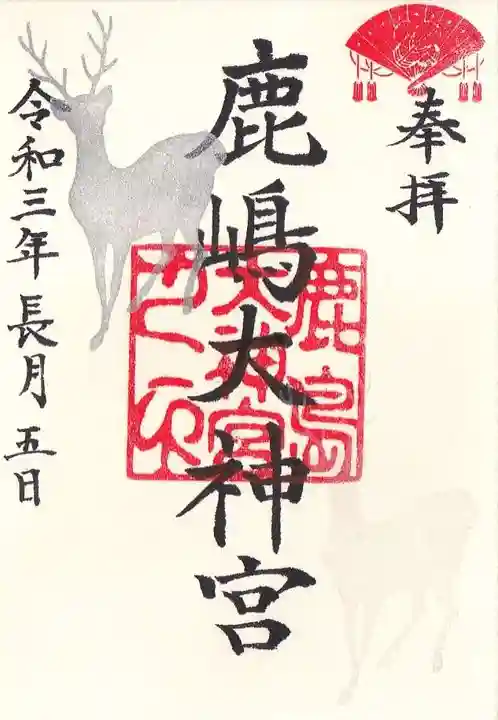 奉拝
鹿嶋大神宮
鹿島
大神宮
令和三年長月五日